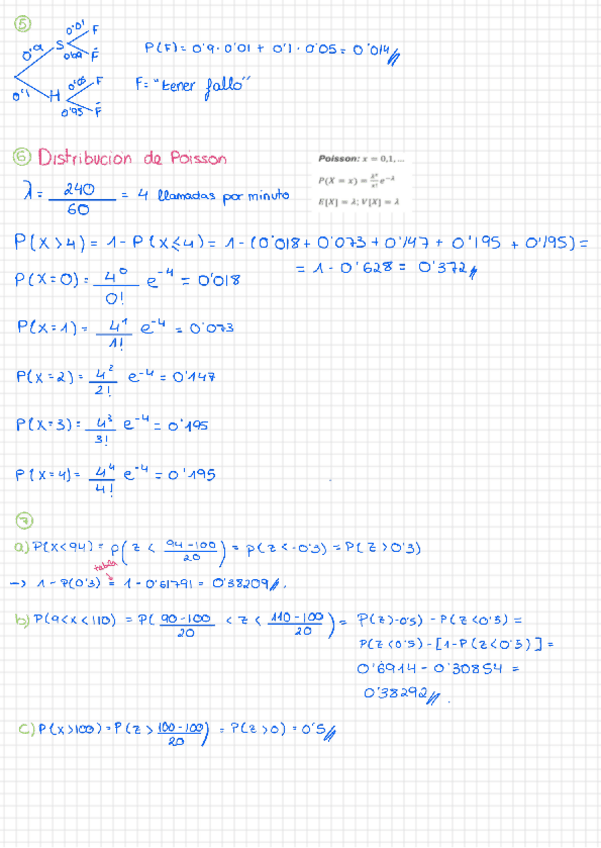 5
0'9 S 0'01 F
0'99 F̄
0'1 H 0'05 F
0'95 F̄
P(F) = 0'9 · 0'01 + 0'1 · 0'05 = 0'014
F = "tener fallo"
6 Distribución de Poisson
Poisson: x = 0,1,...
P(X = x) = λ^x/x! e^-λ
E[X] = λ; V[X] = λ
λ = 240/60 = 4 llamadas por minuto
P(X > 4) = 1 - P(X ≤ 4) = 1 - (0'018 + 0'073 + 0'147 + 0'195 + 0'195) =
= 1 - 0'628 = 0'372
P(X = 0) = 4^0/0! e^-4 = 0'018
P(X = 1) = 4^1/1! e^-4 = 0'073
P(X = 2) = 4^2/2! e^-4 = 0'147
P(X = 3) = 4^3/3! e^-4 = 0'195
P(X = 4) = 4^4/4! e^-4 = 0'195
7
a) P(X < 94) = P(Z < 94-100/20) = P(Z < -0'3) = P(Z > 0'3)
tabla
→ 1 - P(0'3) = 1 - 0'61791 = 0'38209
b) P(9 < X < 110) = P(90-100/20 < Z < 110-100/20) = P(Z > -0'5) - P(Z < 0'5) =
P(Z < 0'5) - [1 - P(Z < 0'5)] =
0'6914 - 0'30854 =
0'38292
c) P(X > 100) = P(Z > 100-100/20) = P(Z > 0) = 0'5